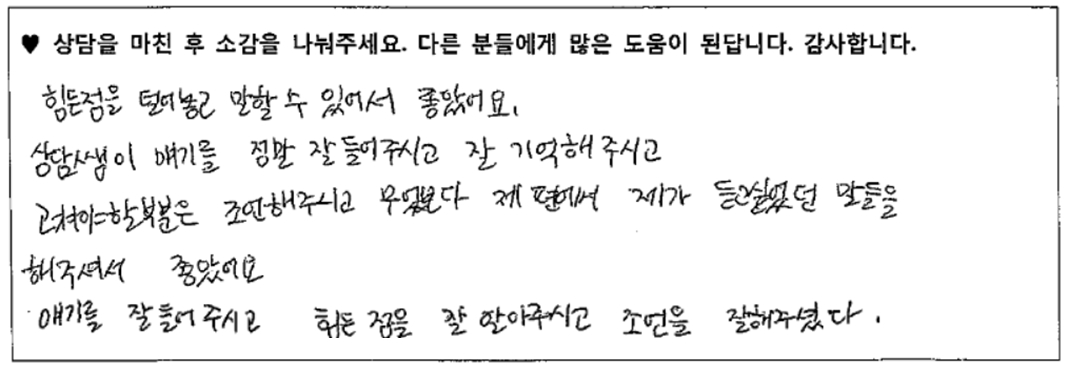 ♥ 상담을 마친 후 소감을 나눠주세요. 다른 분들에게 많은 도움이 된답니다. 감사합니다.
힘든점을 털어놓고 말할 수 있어서 좋았어요.
상담쌤이 얘기를 정말 잘 들어주시고 잘 기억해 주시고
고쳐야할부분은 조언해주시고 무엇보다 제 편에서 제가 듣고싶었던 말들을
해주셔서 좋았어요
얘기를 잘 들어 주시고 힘든 점을 잘 알아주시고 조언을 잘해주셨다.